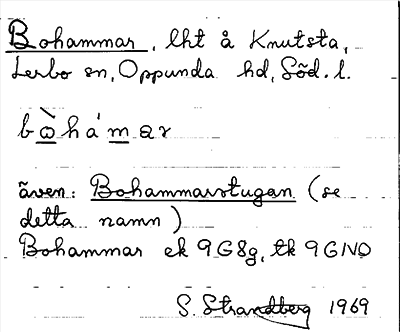 Bohammar, lht å Knutsta,
Lerbo sn, Oppunda hd, Söd. l.
bò̱hám̱ar
även: Bohammarstugan (se
detta namn)
Bohammar ek 9G8g, tk 9GNO
S. Strandberg 1969